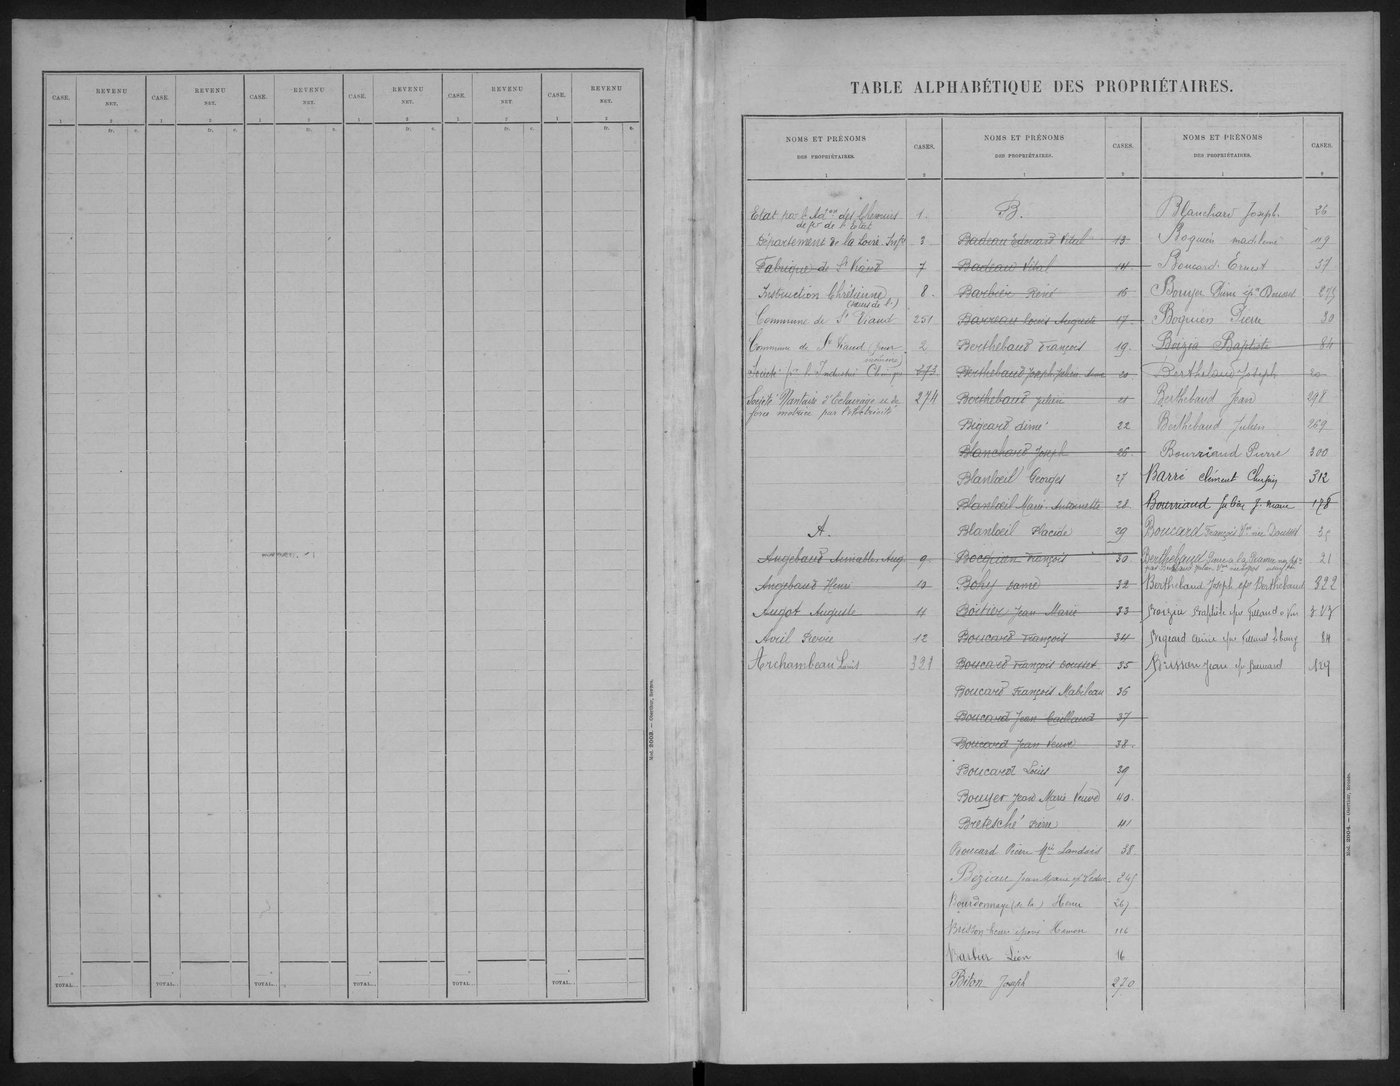 CASE. REVENU NET. CASE. REVENU NET. CASE. REVENU NET. CASE. REVENU NET. CASE. REVENU NET. CASE. REVENU NET.
1 2 1 2 1 2 1 2 1 2 1 2
fr. c. fr. c. fr. c. fr. c. fr. c. fr. c.
TOTAL. TOTAL. TOTAL. TOTAL. TOTAL. TOTAL.
Mod. 2003. — Oberthur, Rennes.
TABLE ALPHABÉTIQUE DES PROPRIÉTAIRES.
NOMS ET PRÉNOMS DES PROPRIÉTAIRES. CASES.
1 2
Etat par l' Adon des Chemins 1.
de fer de l'Etat
Département de la Loire Infre 3
Fabrique de St Viaud 7
Instruction Chrétienne 8.
(sœurs de l')
Commune de St Viaud 251
Commune de St Viaud (pour 2
273
Société Nantaise d'Eclairage et de 274
force motrice par l'électricité
A.
Angebaud Aimable Aug 9.
Angebaud Henri 10
Augot Auguste 11
Avril 12
Archambeau Louis 321
NOMS ET PRÉNOMS DES PROPRIÉTAIRES. CASES.
1 2
B.
Badeau Edouard Vital 13
Badeau Vital 14
Barbier René 16
Barreau Louis Auguste 17.
Berthebaud François 19.
Berthebaud Joseph Julien 20
Berthebaud Julien 21
Bigeard Aimé 22
Blanchard Joseph 26
Blanloeil Georges 27
Blanloeil Marie Antoinette 28
Blanloeil Placide 29
Bocquien François 30
Bohy 32
Boitier Jean Marie 33
Boucard François 34
Boucard François Doussel. 35
Boucard François Mabileau 36
Boucard Jean Caillaud 37
Boucard Jean Veuve 38.
Boucard Louis 39
Bouyer Jean Marie Veuve 40.
Bretesché Pierre 41
Boucard Pierre Landais 38.
Beziau Jean Marie 245
Bourdonnaye (de la) Henri 267
Brisson époux Hamon 116
Barbier Léon 16
Biton Joseph 270
NOMS ET PRÉNOMS DES PROPRIÉTAIRES. CASES.
1 2
Blanchard Joseph 26
Boquien madeleine 119
Boucard Ernest 37
Bouyer 275
Boquien Pierre 30
Baptiste 84
Berthebaud Joseph 20
Berthebaud Jean 298
Berthebaud Julien 269
Bourriaud Pierre 300
Barré Clément 312
Bourriaud Julien J. Marie 178
Boucard François Vve née Doussel 35
Berthebaud 21
Berthebaud Joseph épx Berthebaud 322
Baptiste
Bigeard Aimé 84
Brisson Jean 129
Mod. 2004. — Oberthur, Rennes.